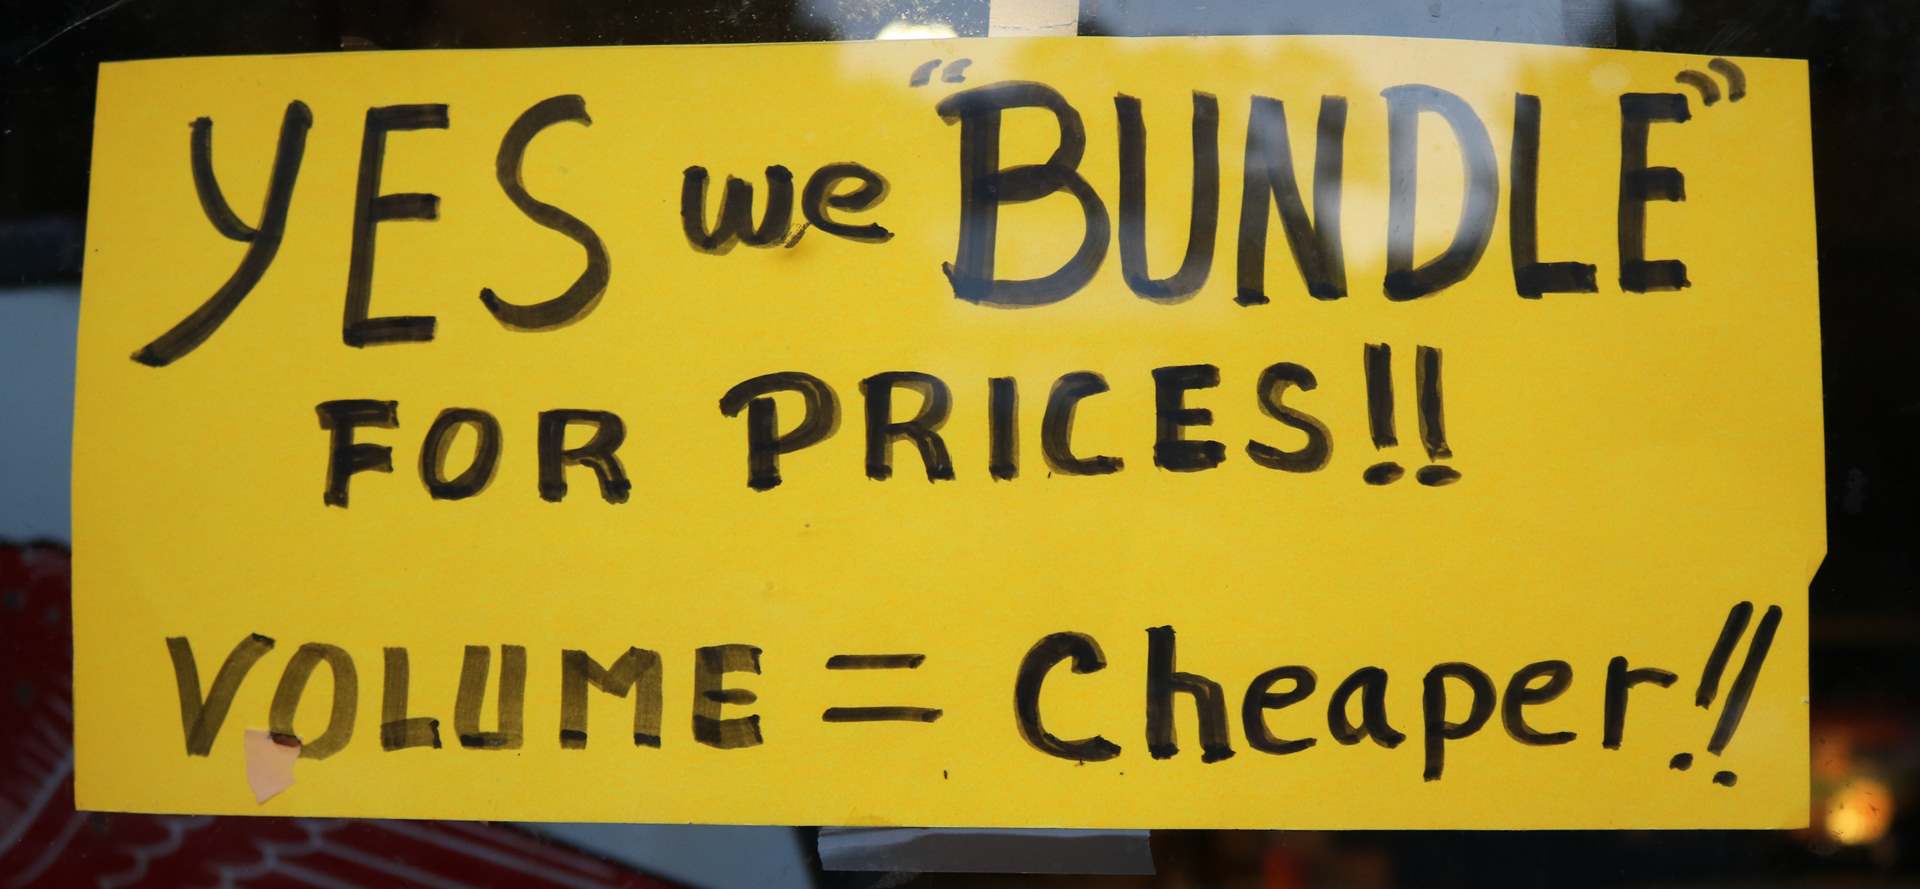 YES we "BUNDLE"
FOR PRICES!!
VOLUME = Cheaper!!